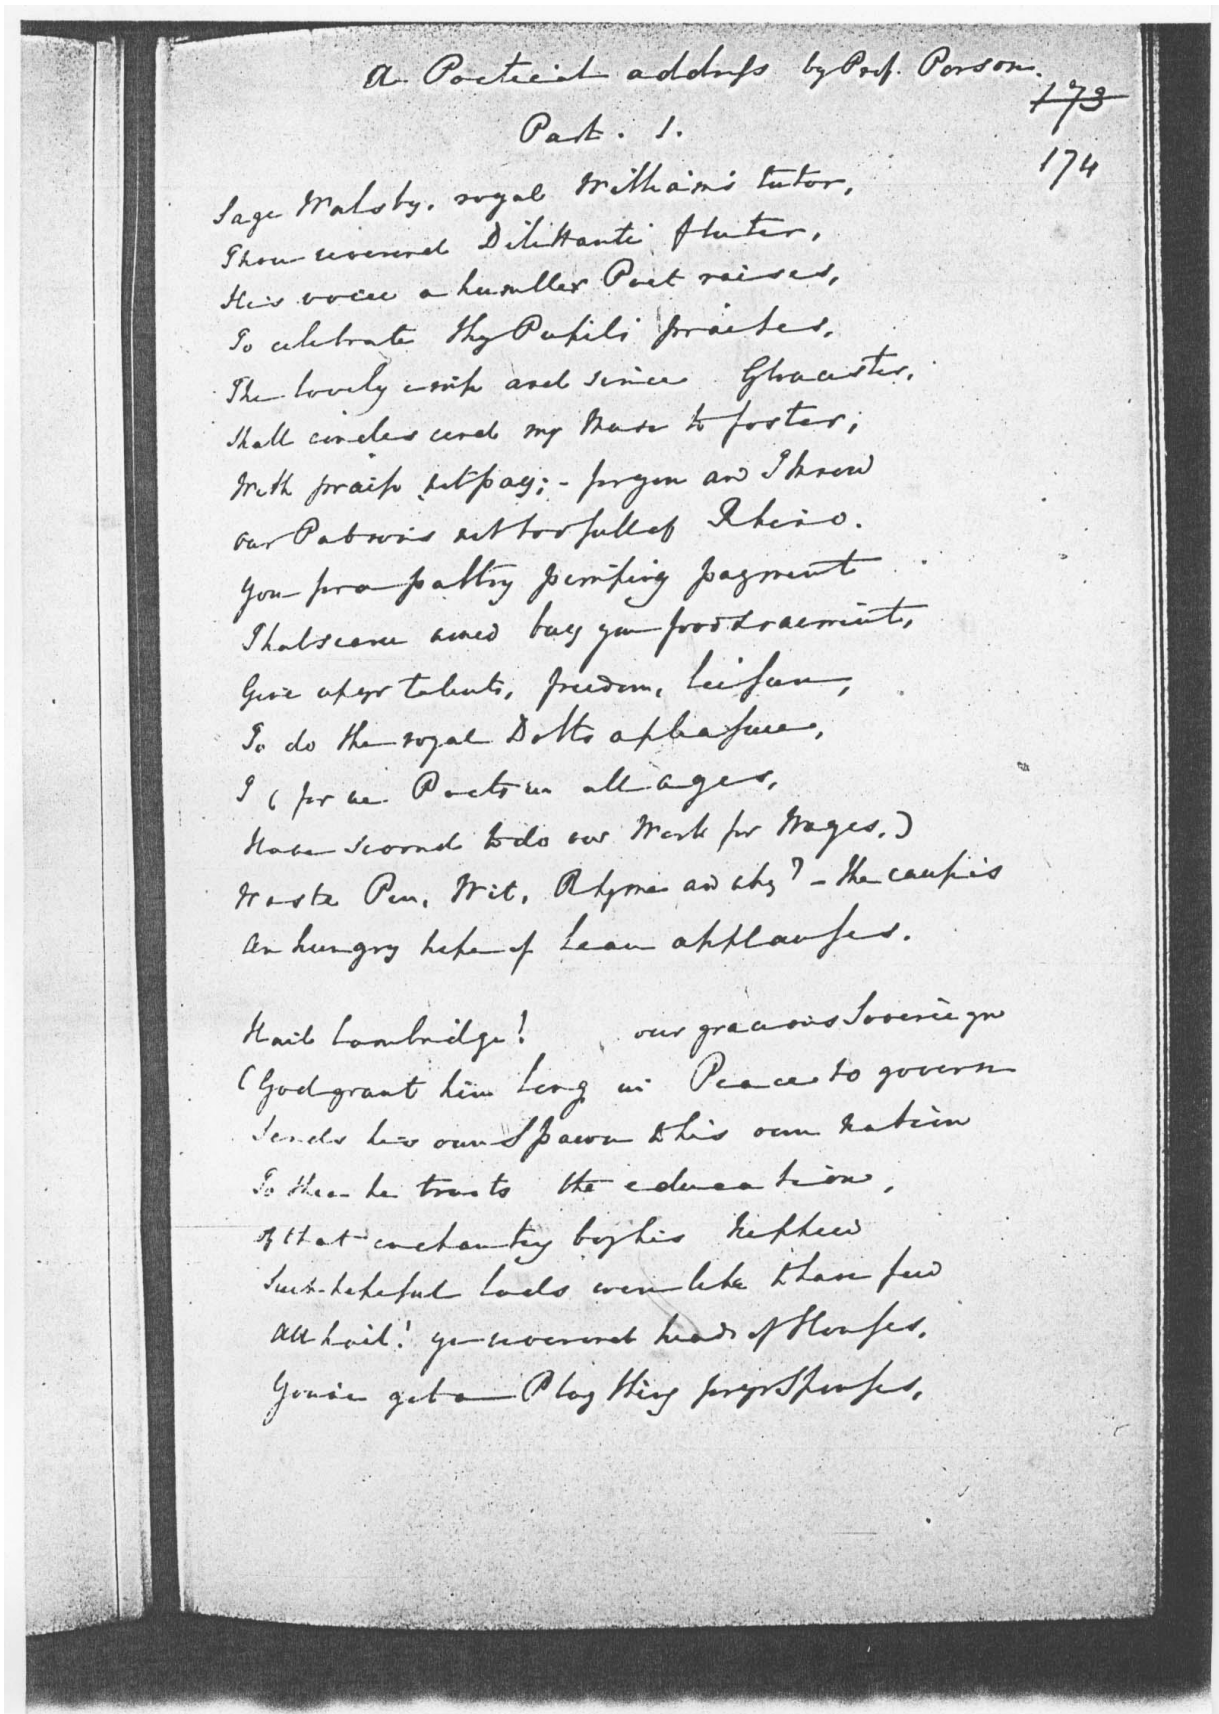 A Poetical address by Prof. Porson.
173
Part. 1.
174
Sage Walsby, royal William's tutor,
Thou reverend Dilettanti fluter,
His voice a humbler Poet raises,
To celebrate thy Pupils praises,
The lovely and Gloucester,
Shall my Muse to foster;
With praise not pay; - for you and I know
our Patrons not too full of Rhino.
You for a paltry pimping payment
That scarce woud buy you food & raiment,
Give up yr talents, freedom, leisure,
To do the royal Dolts a pleasure,
I (for we Poets in all ages,
Have scorned to do our Work for Wages.)
Waste Pen, Wit, Rhyme and why? - the cause is
An hungry hope of lean applauses.
Hail Cambridge! our gracious Sovereign
(God grant him long in Peace to govern
Sends his own Spawn to his own Nation
To thee he trusts the education,
of that enchanting boy his Nephew
Such hopeful lads were like to have few
All hail! ye reverend heads of Houses,
You've got a Play thing for yr Spouses,